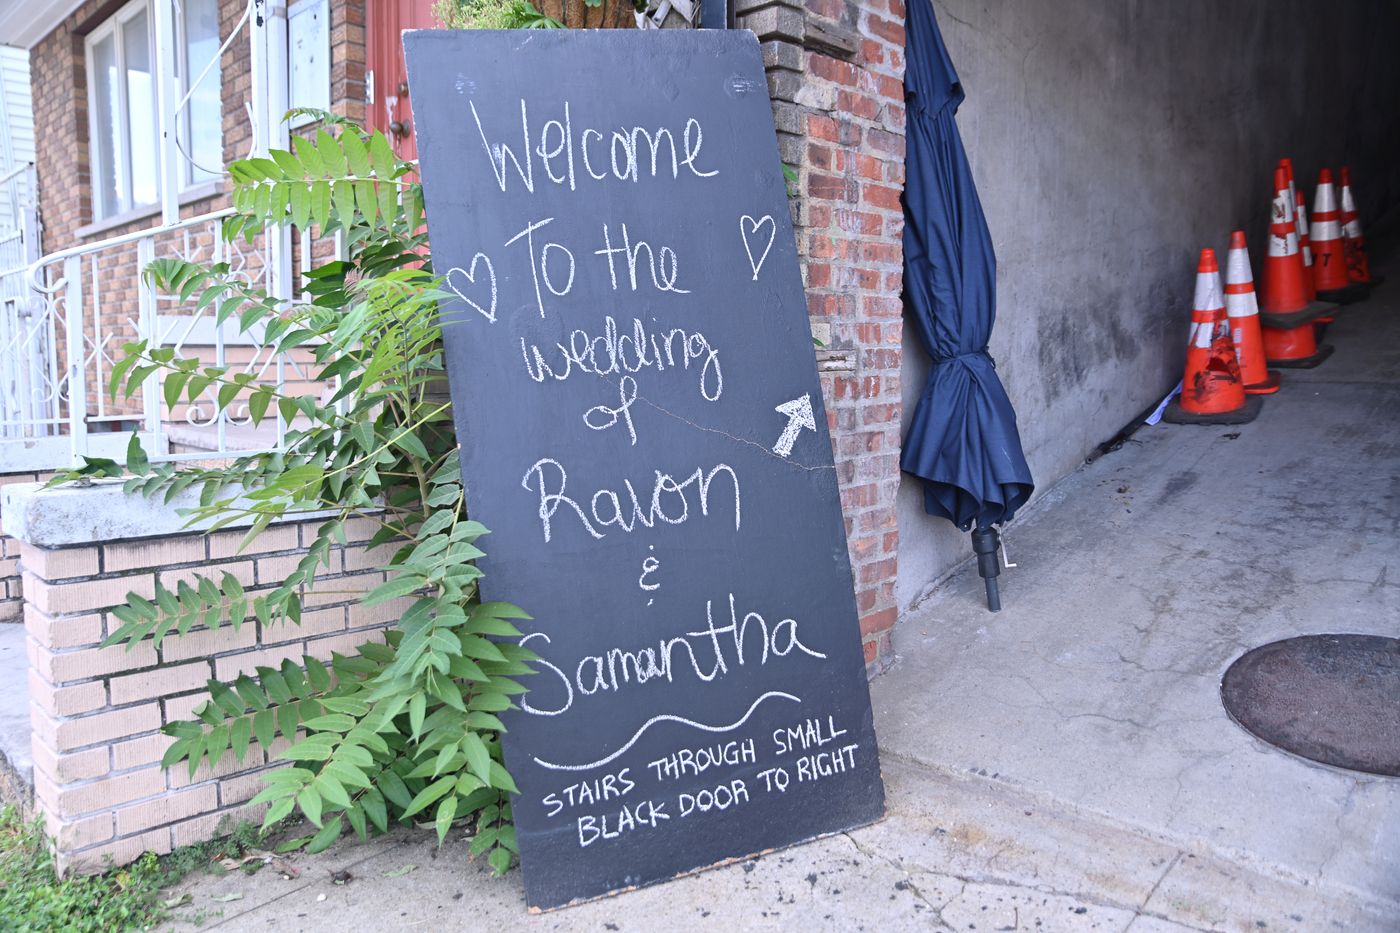 Welcome
To the
wedding
of
Ravon
&
Samantha
STAIRS THROUGH SMALL
BLACK DOOR TO RIGHT